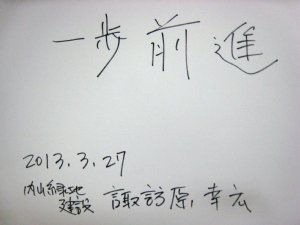 一歩前進
2013.3.27
内山緑地
建設 諏訪原幸広